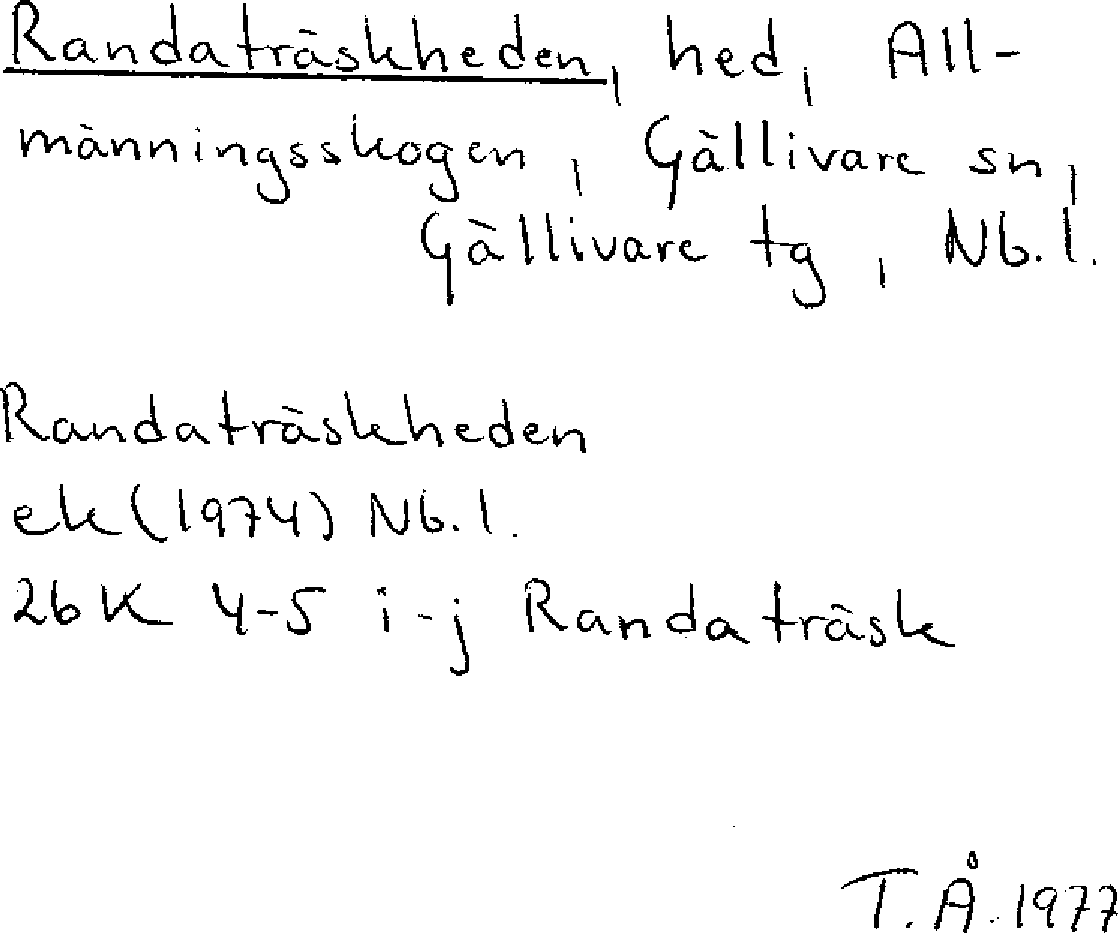 Randaträskheden, hed, All-
männingsskogen, Gällivare sn,
Gällivare tg, Nb.l.
Randaträskheden
ek (1974) Nb.l.
26K 4-5 i-j Randaträsk
T.Å. 1977